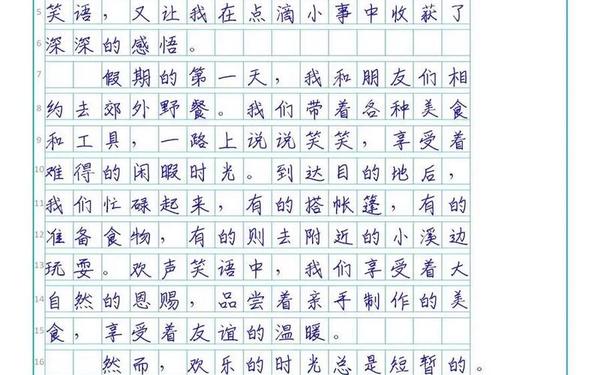 5 笑语，又让我在点滴小事中收获了
6 深深的感悟。
7 假期的第一天，我和朋友们相
8 约去郊外野餐。我们带着各种美食
9 和工具，一路上说说笑笑，享受着
10 难得的闲暇时光。到达目的地后，
11 我们忙碌起来，有的搭帐篷，有的
12 准备食物，有的则去附近的小溪边
13 玩耍。欢声笑语中，我们享受着大
14 自然的恩赐，品尝着亲手制作的美
15 食，享受着友谊的温暖。
16 然而，欢乐的时光总是短暂的。